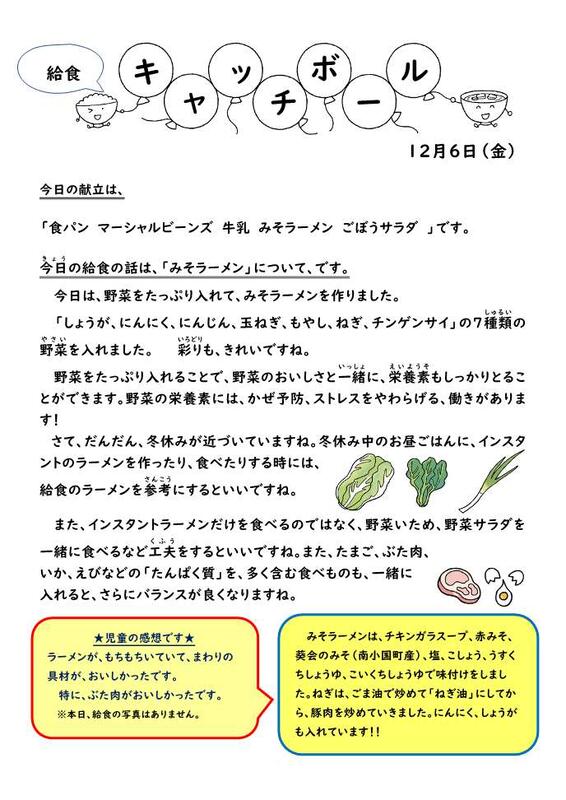 給食
キャッチボール
12月6日(金)
今日の献立は、
「食パン マーシャルビーンズ 牛乳 みそラーメン ごぼうサラダ 」です。
きょう
今日の給食の話は、「みそラーメン」について、です。
今日は、野菜をたっぷり入れて、みそラーメンを作りました。
しゅるい
「しょうが、にんにく、にんじん、玉ねぎ、もやし、ねぎ、チンゲンサイ」の7種類の
やさい いろどり
野菜を入れました。 彩りも、きれいですね。
いっしょ えいようそ
野菜をたっぷり入れることで、野菜のおいしさと一緒に、栄養素もしっかりとるこ
とができます。野菜の栄養素には、かぜ予防、ストレスをやわらげる、働きがありま
す!
さて、だんだん、冬休みが近づいていますね。冬休み中のお昼ごはんに、インスタ
ントのラーメンを作ったり、食べたりする時には、
さんこう
給食のラーメンを参考にするといいですね。
また、インスタントラーメンだけを食べるのではなく、野菜いため、野菜サラダを
くふう
一緒に食べるなど工夫をするといいですね。また、たまご、ぶた肉、
いか、えびなどの「たんぱく質」を、多く含む食べものも、一緒に
入れると、さらにバランスが良くなりますね。
★児童の感想です★
ラーメンが、もちもちいていて、まわりの
具材が、おいしかったです。
特に、ぶた肉がおいしかったです。
※本日、給食の写真はありません。
みそラーメンは、チキンガラスープ、赤みそ、
葵会のみそ(南小国町産)、塩、こしょう、うすく
ちしょうゆ、こいくちしょうゆで味付けをしまし
た。ねぎは、ごま油で炒めて「ねぎ油」にしてか
ら、豚肉を炒めていきました。にんにく、しょうが
も入れています!!